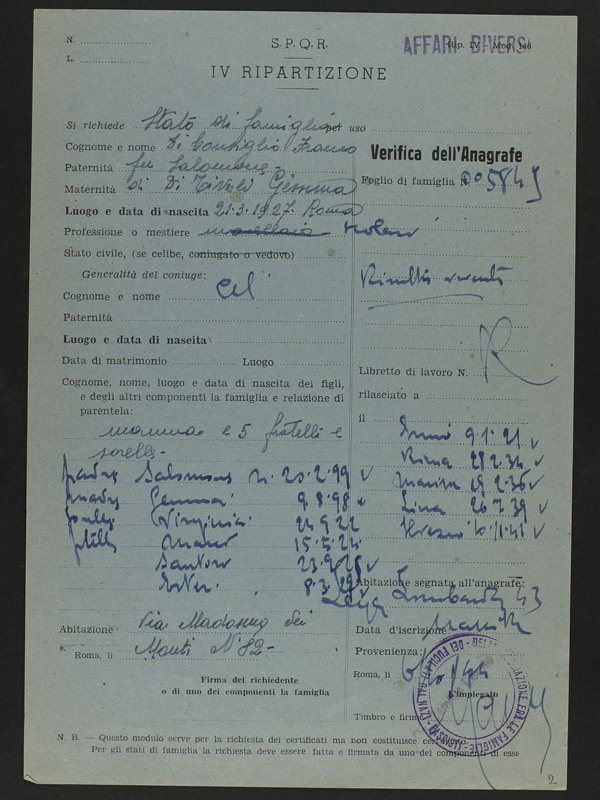 N.
L.
S.P.Q.R.
AFFARI DIVERSI
Rip. IV - Mod. 146
IV RIPARTIZIONE
Si richiede Stato di famiglia per uso
Cognome e nome Di Consiglio Franco
Paternità fu Salomone
Maternità di Di Tivoli Gemma
Luogo e data di nascita 21.3.1927 Roma
Professione o mestiere
Stato civile, (se celibe, coniugato o vedovo)
Generalità del coniuge:
Cognome e nome cel
Paternità
Luogo e data di nascita
Data di matrimonio Luogo
Cognome, nome, luogo e data di nascita dei figli,
e degli altri componenti la famiglia e relazione di
parentela:
mamma e 5 fratelli e
sorelle -
padre Salomone n. 20.2.99 v
madre Gemma 9.8.98
Virginia 24.9.22
15.5.24
Santoro 23.9.25 v
Ester 8.3.29
Abitazione Via Madonna dei
Roma, li Monti N° 82 -
Firma del richiedente
o di uno dei componenti la famiglia
Verifica dell'Anagrafe
Foglio di famiglia N.
Libretto di lavoro N.
rilasciato a
il
9.1.21 v
Rina v
Marisa 19.2.36 v
Lina 26.7.39 v
v
Abitazione segnata all'anagrafe:
Lombardi 43
Data d'iscrizione
Provenienza:
Roma, li
L'impiegato
Timbro e firma
N. B. — Questo modulo serve per la richiesta dei certificati ma non costituisce certificato.
Per gli stati di famiglia la richiesta deve essere fatta e firmata da uno dei componenti di esse
2